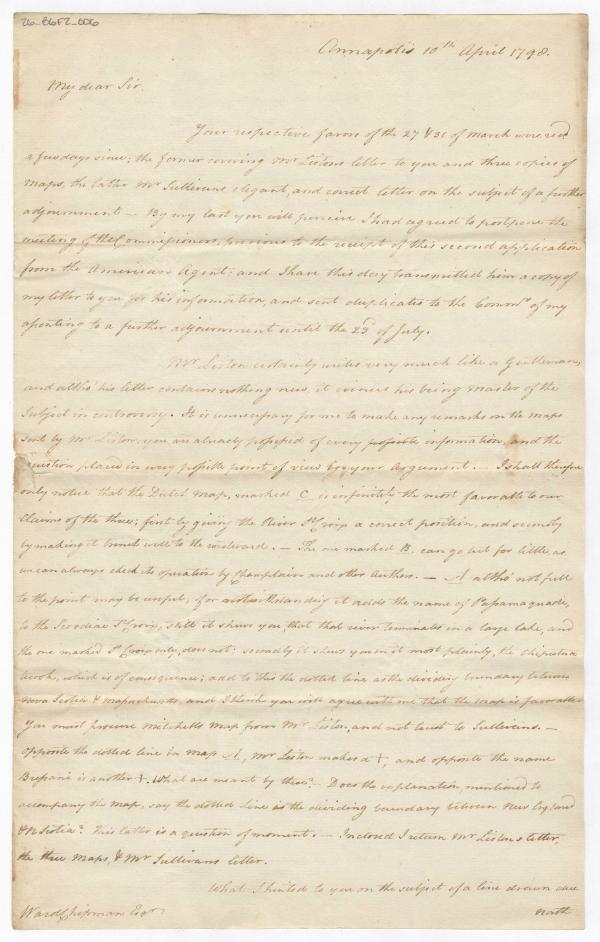 26-B6F2-006
Annapolis 10th April 1798.
My dear Sir.
Your respective favors of the 27 & 31 of March were recd
a few days since; the former covering Mr Listons letter to you and three copies of
Maps, the latter Mr Sullivans elegant, and correct letter on the subject of a further
adjournment — By my last you will perceive I had agreed to postpone the
meeting of the Commissioners, previous to the receipt of this second application
from the American Agent; and I have this day transmitted him a copy of
my letter to you for his information, and sent duplicates to the Commrs of my
to a further adjournment until the 23d of July.
Mr Liston certainly writes very much like a Gentleman,
and altho' his letter contains nothing new, it his being Master of the
Subject in controversy. It is unnecessary for me to make any remarks on the Maps
sent by Mr Liston, you are already possessed of every possible information, and the
question placed in every possible point of view by your Argument. — I shall therefore
only notice that the Dutch Map, marked C is infinitely the most favorable to our
Claims of the three; first by giving the River St Croix a correct position, and secondly
by making it trend well to the westward. — The one marked B. can go but for little, as
we can always check its operation by Champlain and other Authors. — A altho' not full
to the point may be useful, for notwithstanding it adds the name of Passamaquade,
to the Scoodiac St Croix, still it shews you, that that river terminates in a large lake, and
the one marked St Croix only, does not: secondly it shews you in it most plainly, the
, which is of consequence; add to this the dotted line as the dividing boundary between
Nova Scotia & Massachusetts, and I think you will agree with me that the map is favorable
You must procure Mitchells Map from Mr Liston, and not trust to Sullivans. —
opposite the dotted line in map A, Mr Liston makes a +, and opposite the name
is another +. What are meant by these? — Does the explanation, mentioned to
accompany the Map, say the dotted Line is the dividing boundary between New England
& N Scotia? This latter is a question of moment. — Inclosed I return Mr Listons letter,
the three Maps, & Mr Sullivans letter.
What I hinted to you on the subject of a line drawn due
Ward Chipman Esqr
north